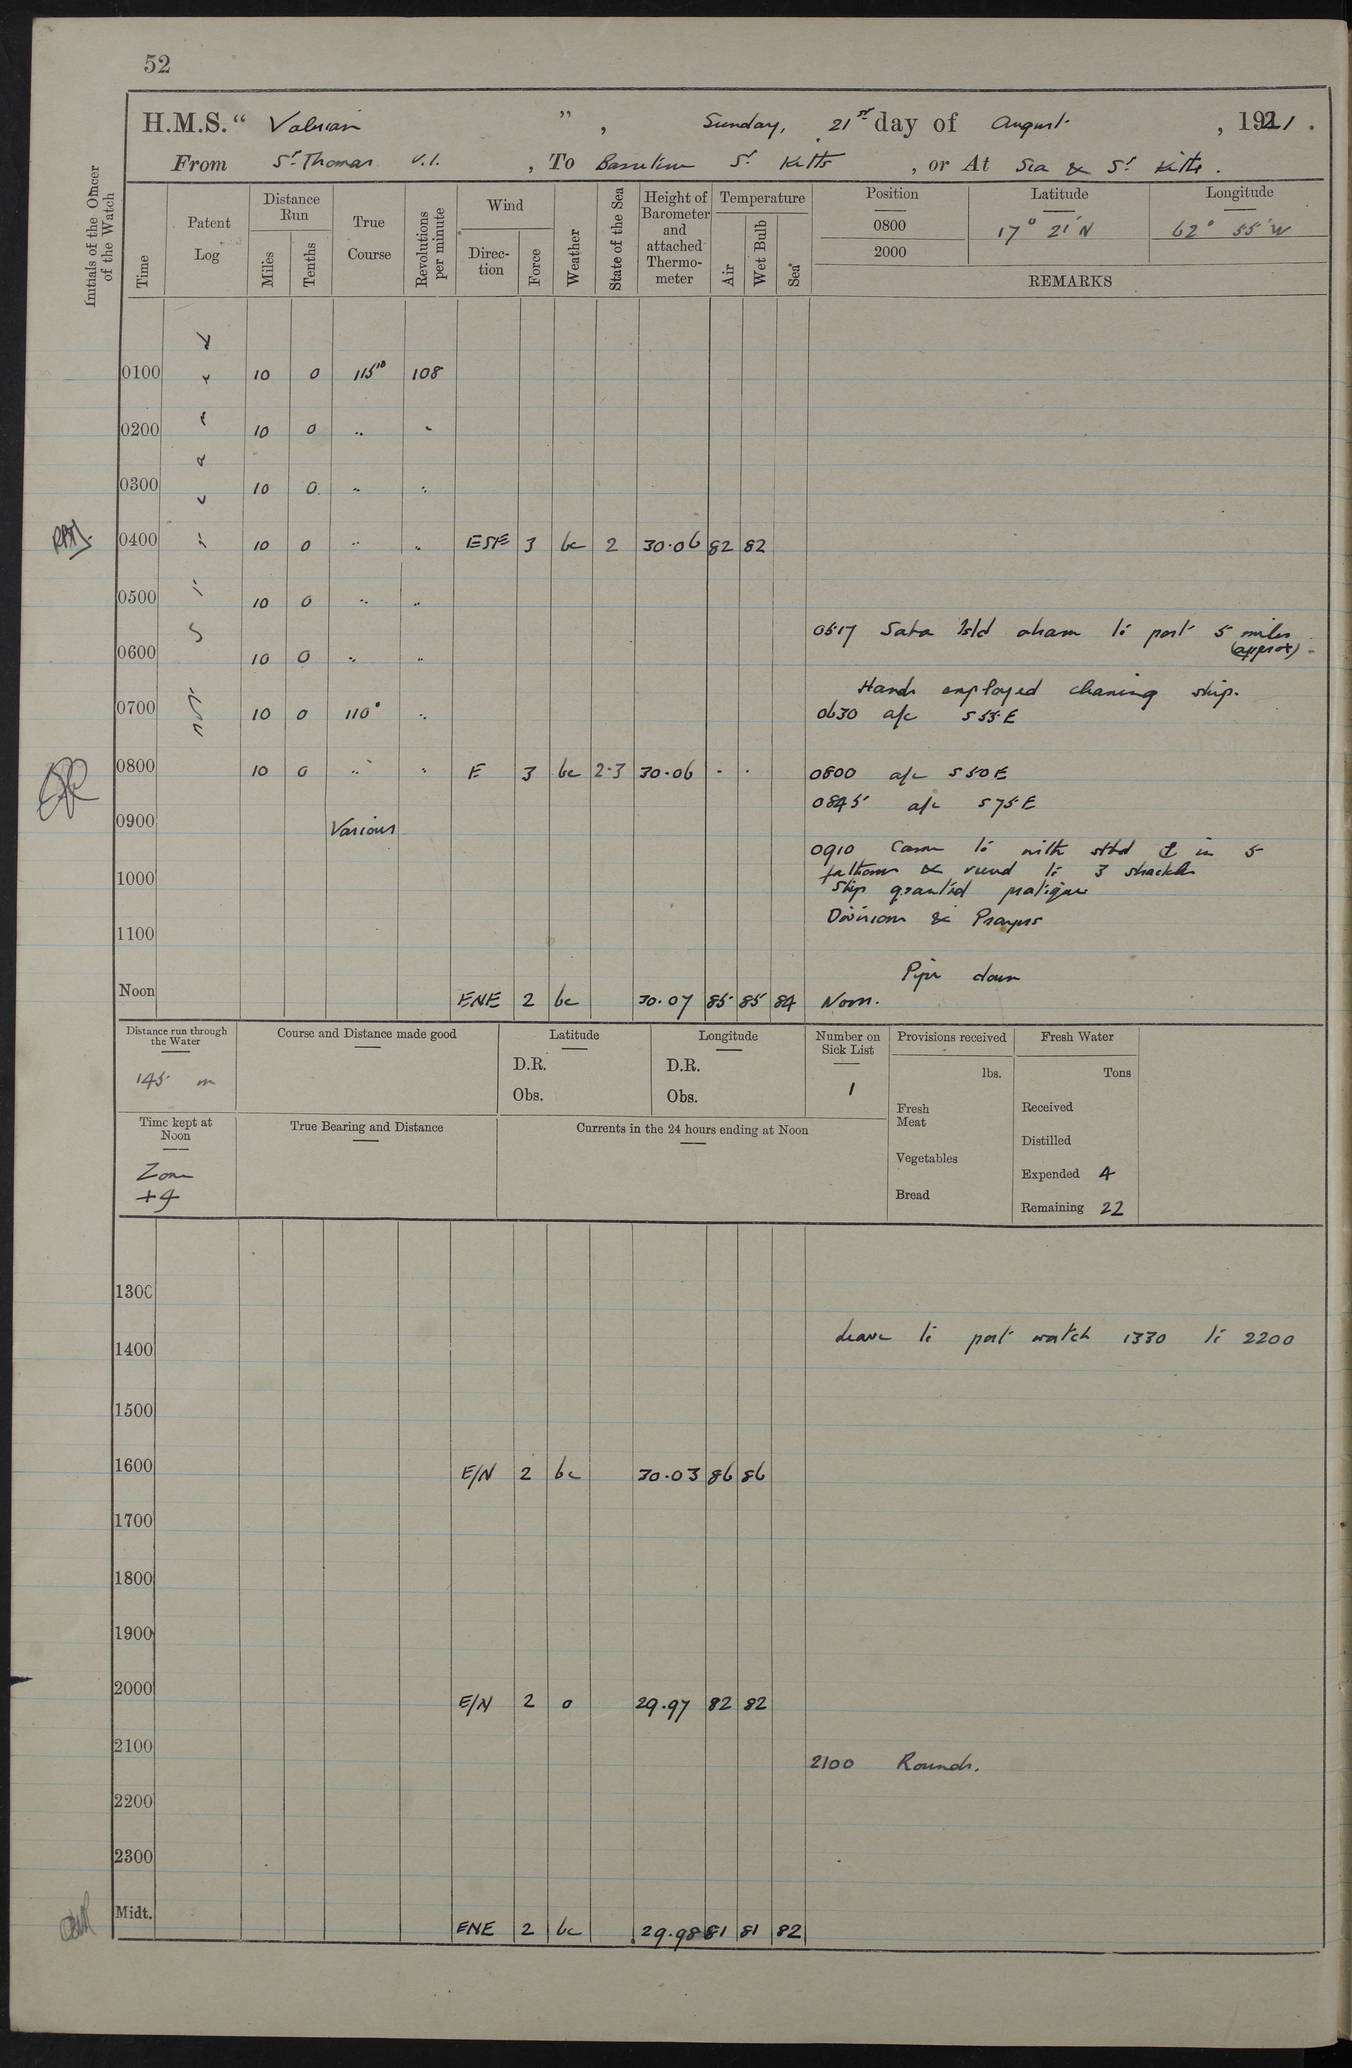 52
H.M.S. “ Valerian ” , Sunday, 21st day of August , 1921 .
From St Thomas V.I. , To Basseterre St Kitts , or At Sea & St Kitts .
Initials of the Officer of the Watch
Time
Patent Log
Distance Run
Miles
Tenths
True Course
Revolutions per minute
Wind
Direc-tion
Force
Weather
State of the Sea
Height of Barometer and attached Thermo-meter
Temperature
Air
Wet Bulb
Sea
Position
Latitude
Longitude
0800 17° 21' N 62° 55' W
2000
REMARKS
0100 10 0 115° 108
0200 10 0 .. ..
0300 10 0 .. ..
0400 10 0 .. .. ESE 3 bc 2 30.06 82 82
0500 10 0 .. ..
0517 Saba Isld abeam to port 5 miles
(approx).
0600 10 0 .. ..
Hands employed cleaning ship.
0700 10 0 110° .. 0630 a/c S55E
0800 10 0 .. .. E 3 bc 2-3 30.06 . . 0800 a/c S50E
0845 a/c S75E
0900 Various
0910 Came to with stbd ⚓ in 5
fathoms & veered to 3 shackles
1000 Ship granted pratique
Divisions & Prayers
1100
Pipe down
Noon ENE 2 bc 30.07 85 85 84 Noon.
Distance run through the Water
145 m
Course and Distance made good
Latitude
D.R.
Obs.
Longitude
D.R.
Obs.
Number on Sick List
1
Provisions received
lbs.
Fresh Meat
Vegetables
Bread
Fresh Water
Tons
Received
Distilled
Expended 4
Remaining 22
Time kept at Noon
Zone
+4
True Bearing and Distance
Currents in the 24 hours ending at Noon
1300
Leave to port watch 1330 to 2200
1400
1500
1600 E/N 2 bc 30.03 86 86
1700
1800
1900
2000 E/N 2 o 29.97 82 82
2100
2100 Rounds.
2200
2300
Midt. ENE 2 bc 29.98 81 81 82